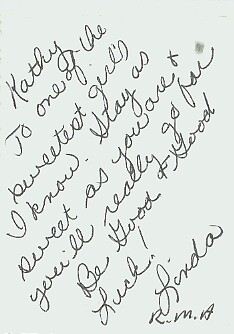 Kathy
To one of the
sweetest girls
I know. Stay as
sweet as you are &
you'll really go far
Be Good & Good
Luck.
Linda
R.M.A